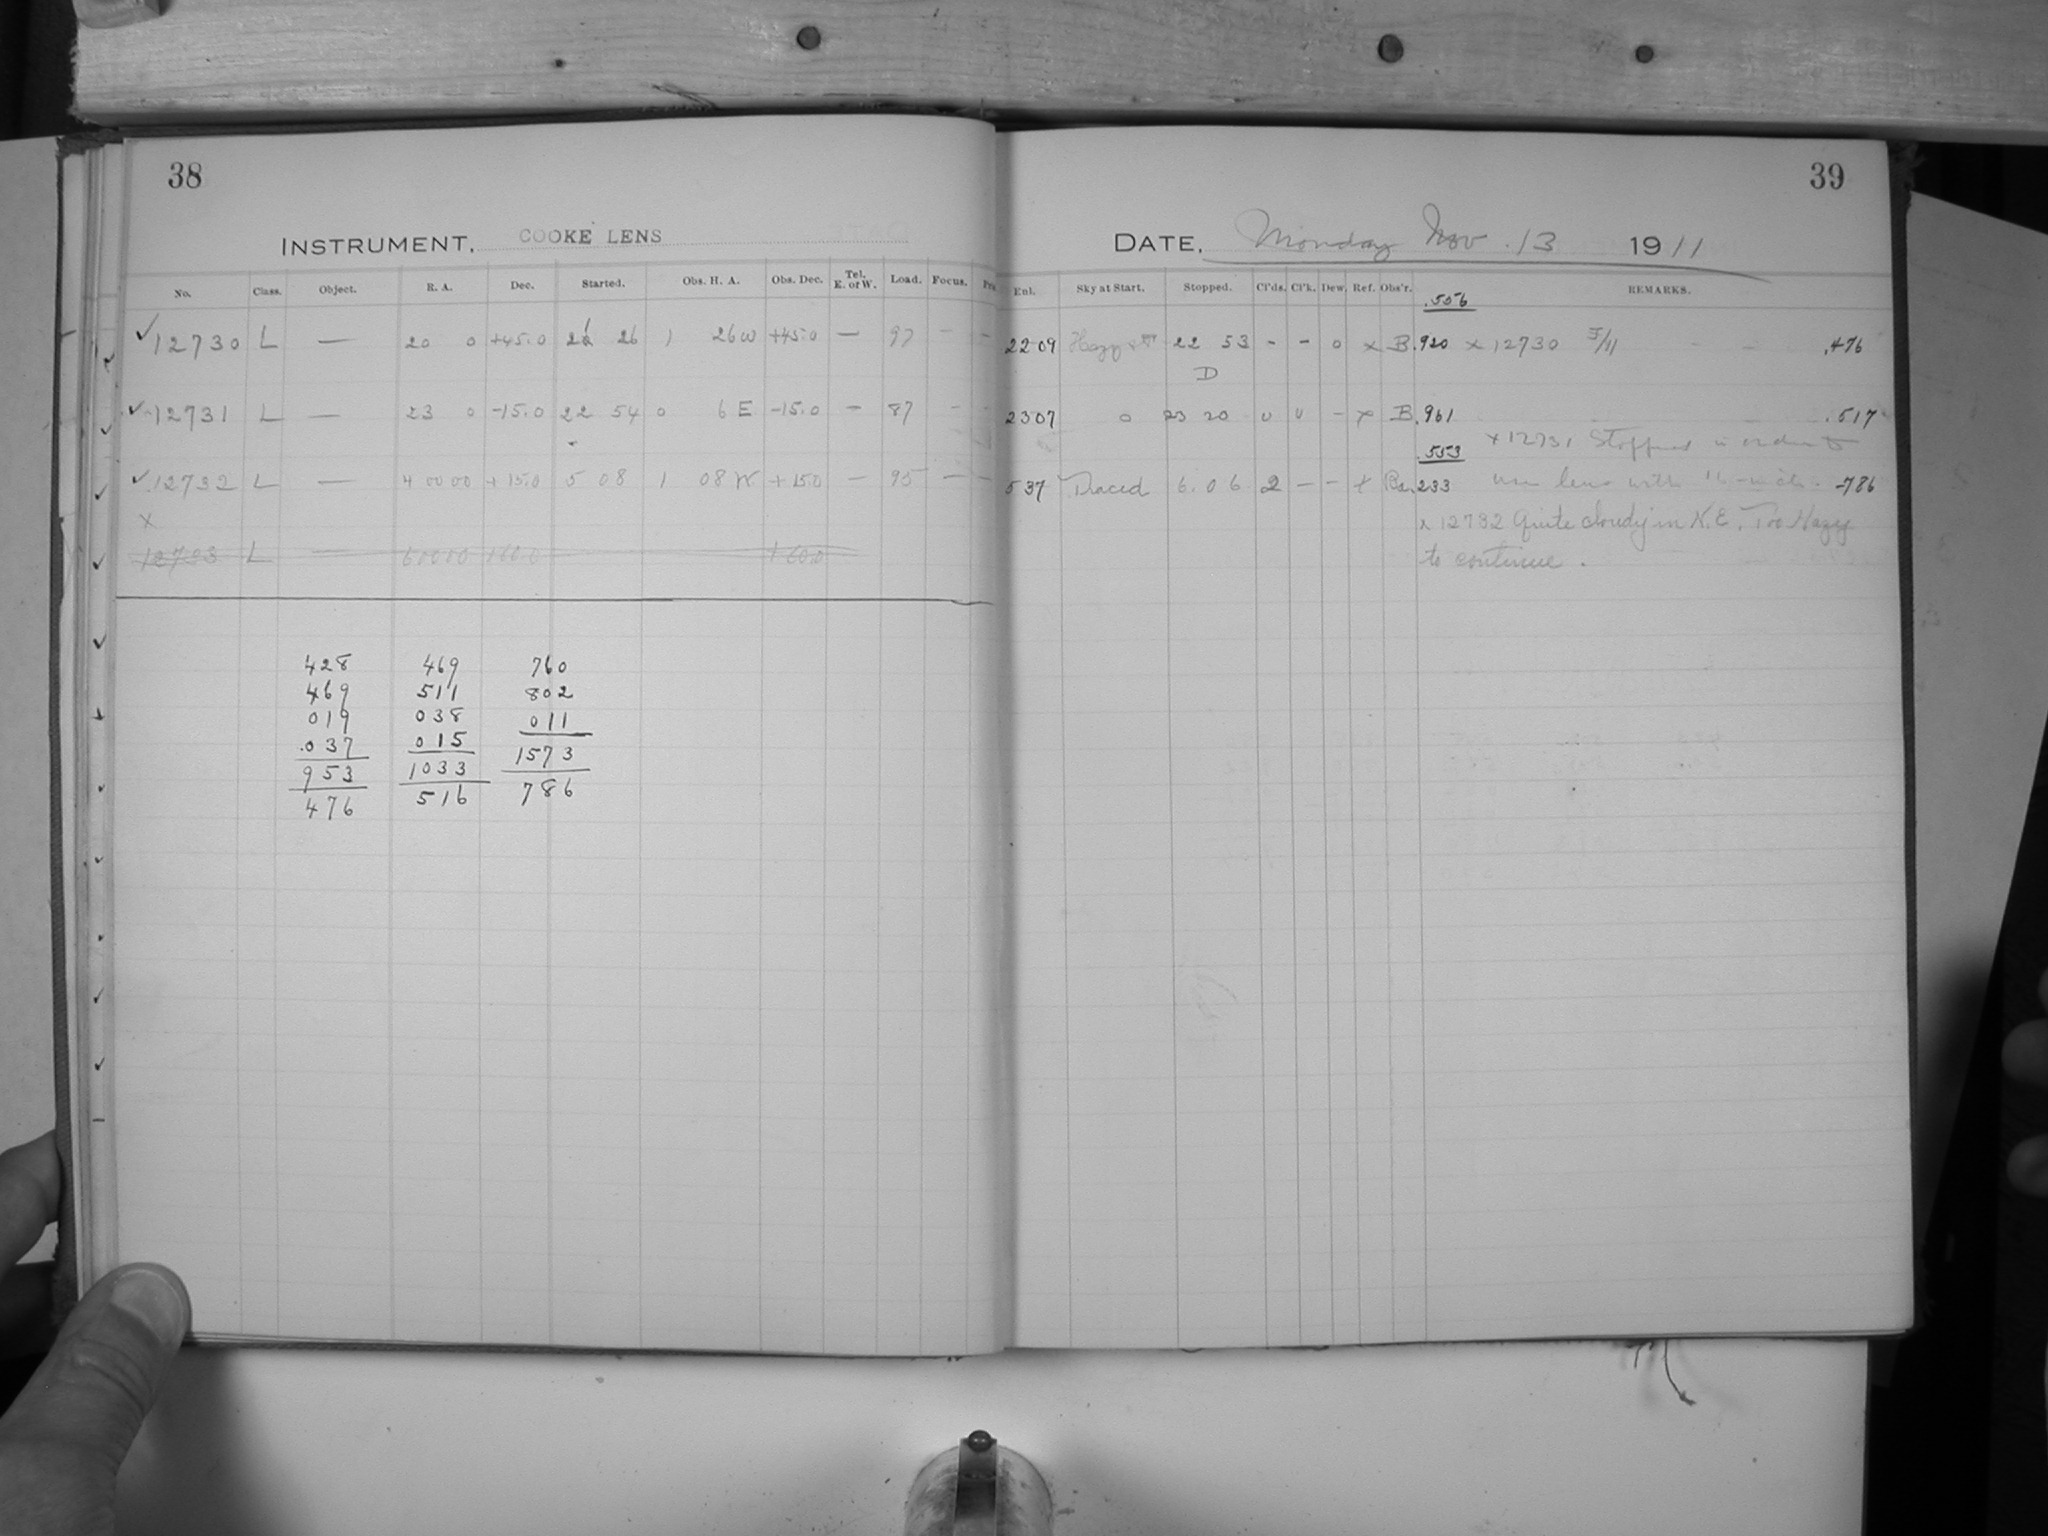 38
INSTRUMENT. COOKE LENS
No. Class. Object. R. A. Dec. Started. Obs. H. A. Obs. Dec. Tel. E. or W. Load. Focus.
12730 L — 20 0 +45.0 26 1 26W +45.0 — 97 –
12731 L — 23 0 -15.0 22 54 0 6 E -15.0 – 87 –
12732 L — 4 00 00 +15.0 5 08 1 08 W +15.0 — 95 —
x
12733 L — 6 00 00 +60.0 +60.0
428 469 760
469 511 802
019 038 011
.037 015 1573
953 1033 786
476 516
39
DATE. Monday Nov. 13 1911
Enl. Sky at Start. Stopped. Cl'ds. Cl'k. Dew. Ref. Obs'r. REMARKS.
.556
22 09 Hazy 22 53 - - 0 x B .920 x 12730 .476
D
23 07 0 23 20 0 0 - x B .961 .517
x 12731 Stopped in order to
.553
5 37 Traced 6.06 2 — – x 233 use lens with 16-inch. .786
x 12732 Quite cloudy in N.E. Too Hazy
to continue.